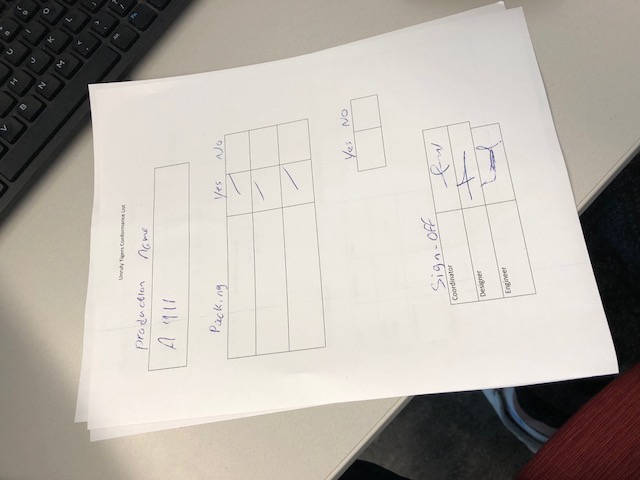 Unruly Tigers Conformance List
production Name
A 411
Packing Yes No
Yes NO
Sign-Off
Coordinator
Designer
Engineer